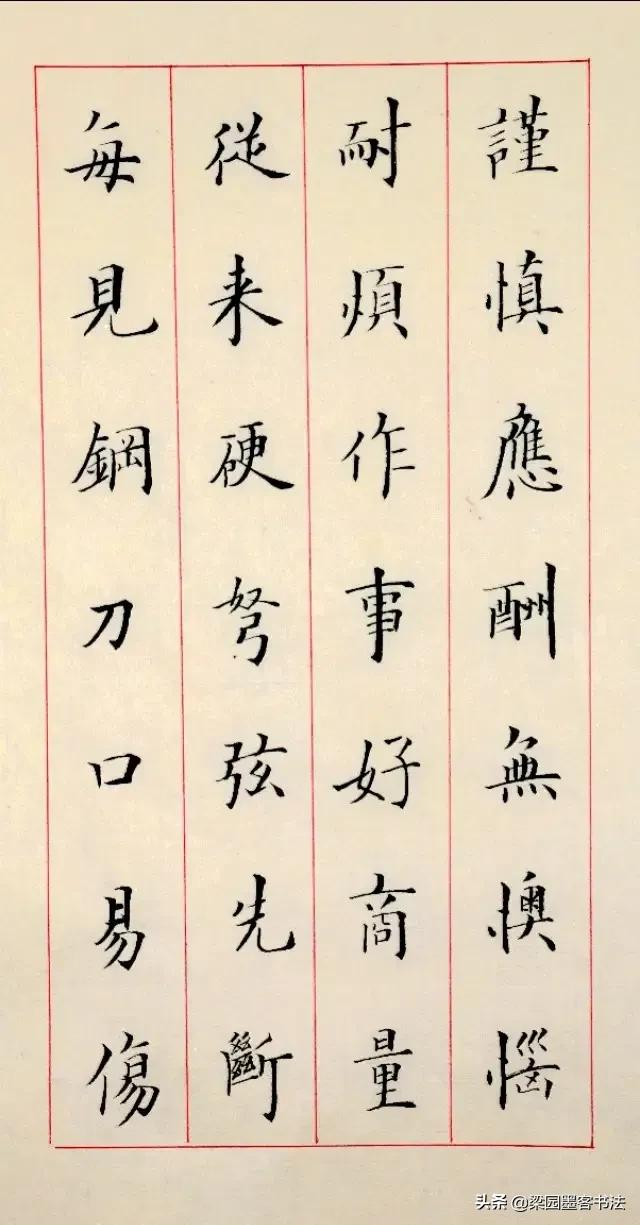 謹慎應酬無懊惱
耐煩作事好商量
從来硬弩弦先斷
每見鋼刀口易傷
头条 @梁园墨客书法